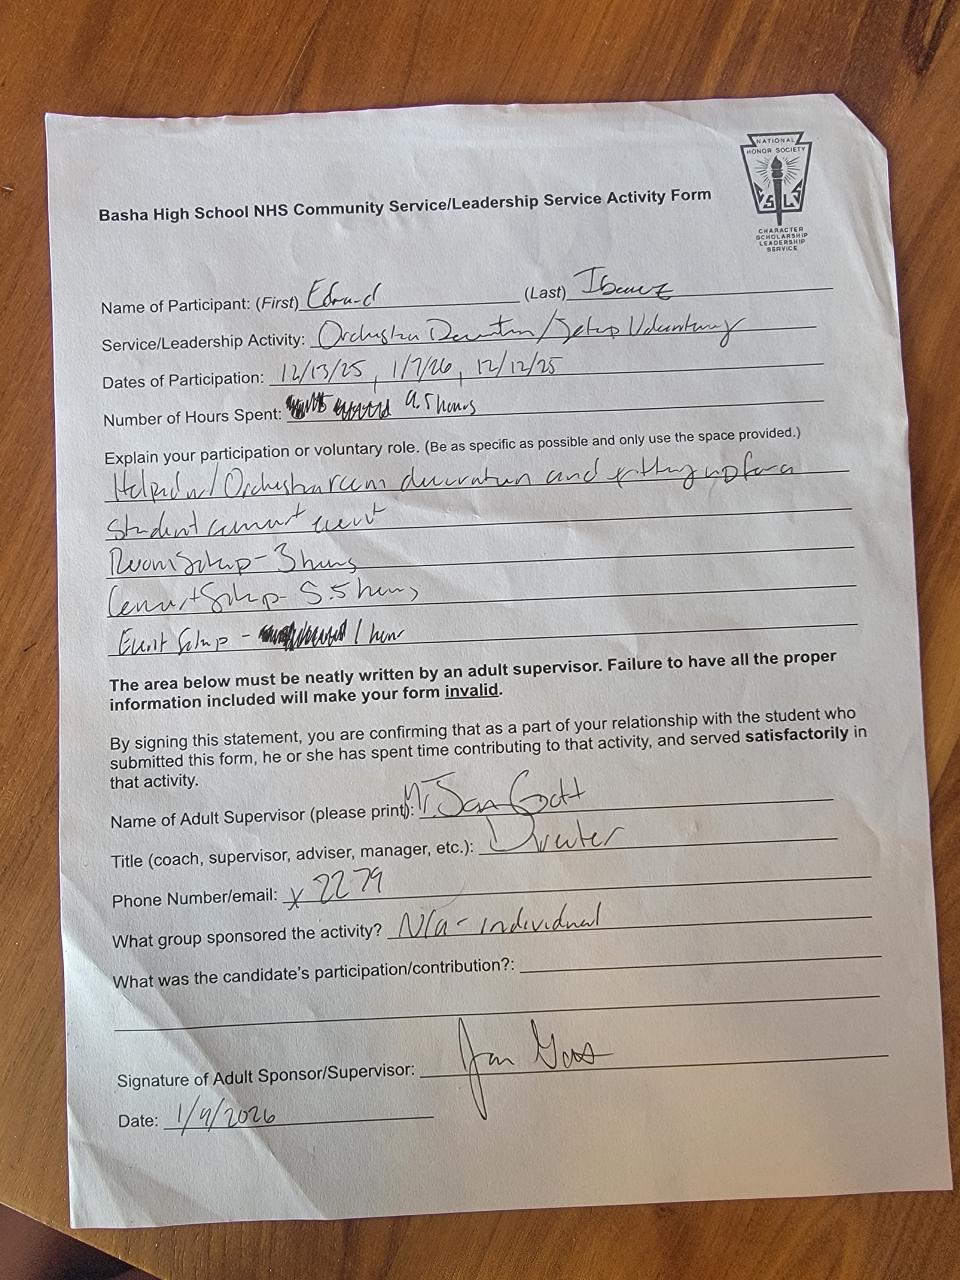 NATIONAL
HONOR SOCIETY
CHARACTER
SCHOLARSHIP
LEADERSHIP
SERVICE
Basha High School NHS Community Service/Leadership Service Activity Form
Name of Participant: (First) (Last)
Service/Leadership Activity: Orchestra /Setup
Dates of Participation: 12/13/25, 1/7/26, 12/12/25
Number of Hours Spent: 9.5 hours
Explain your participation or voluntary role. (Be as specific as possible and only use the space provided.)
Helped w/ Orchestra room and setting up for a
Student event
Room Setup - 3 hours
Setup - 5.5 hours
Event Setup - 1 hour
The area below must be neatly written by an adult supervisor. Failure to have all the proper
information included will make your form invalid.
By signing this statement, you are confirming that as a part of your relationship with the student who
submitted this form, he or she has spent time contributing to that activity, and served satisfactorily in
that activity.
Name of Adult Supervisor (please print): Mr.
Title (coach, supervisor, adviser, manager, etc.): Director
Phone Number/email: x 2279
What group sponsored the activity? N/a - individual
What was the candidate's participation/contribution?:
Signature of Adult Sponsor/Supervisor:
Date: 1/9/2026